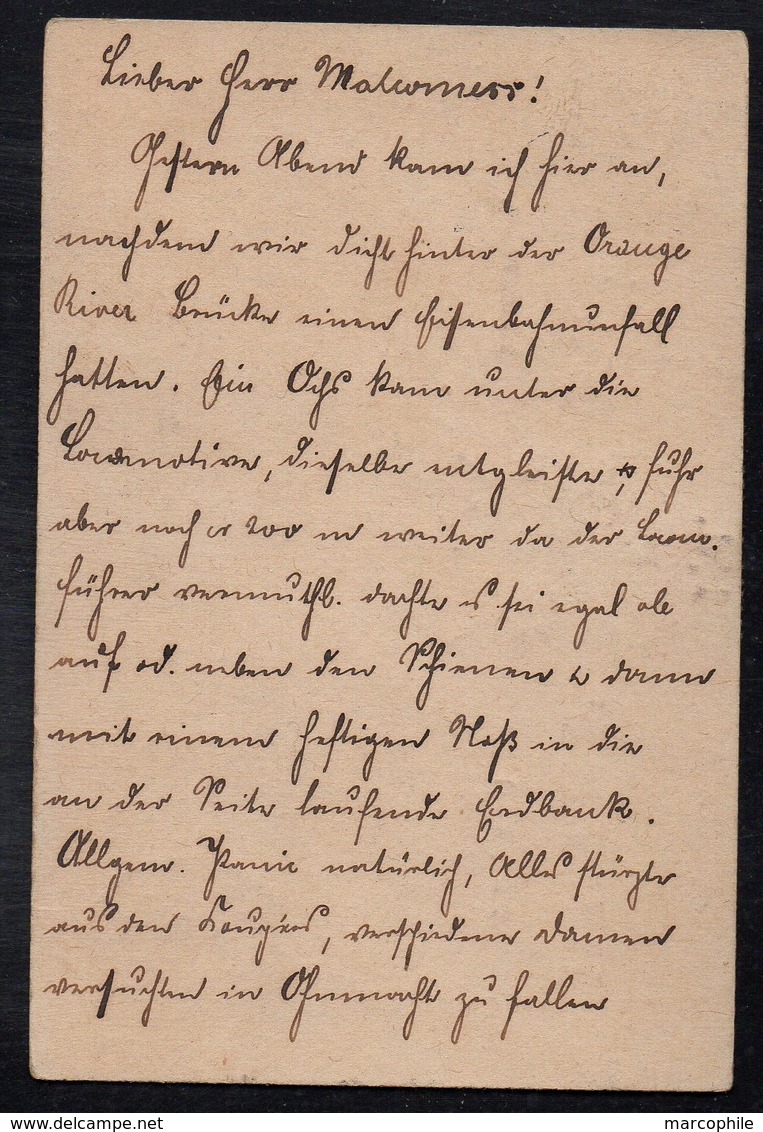 Lieber Herr Malcomess!
Gestern Abend kam ich hier an,
nachdem wir dicht hinter der Orange
River Brücke einen Eisenbahnunfall
hatten. Ein Ochs kam unter die
Locomotive, dieselbe entgleiste, fuhr
aber noch 200 m weiter da der Locom.
führer vermuthl. dachte es sei egal ob
auf od. neben den Schienen & dann
mit einem heftigen Stoß in die
an der Seite laufende Erdbank.
Allgem. Panic natürlich, Alles stürzte
aus den Coupées, verschiedene Damen
versuchten in Ohnmacht zu fallen
www.delcampe.net
marcophile